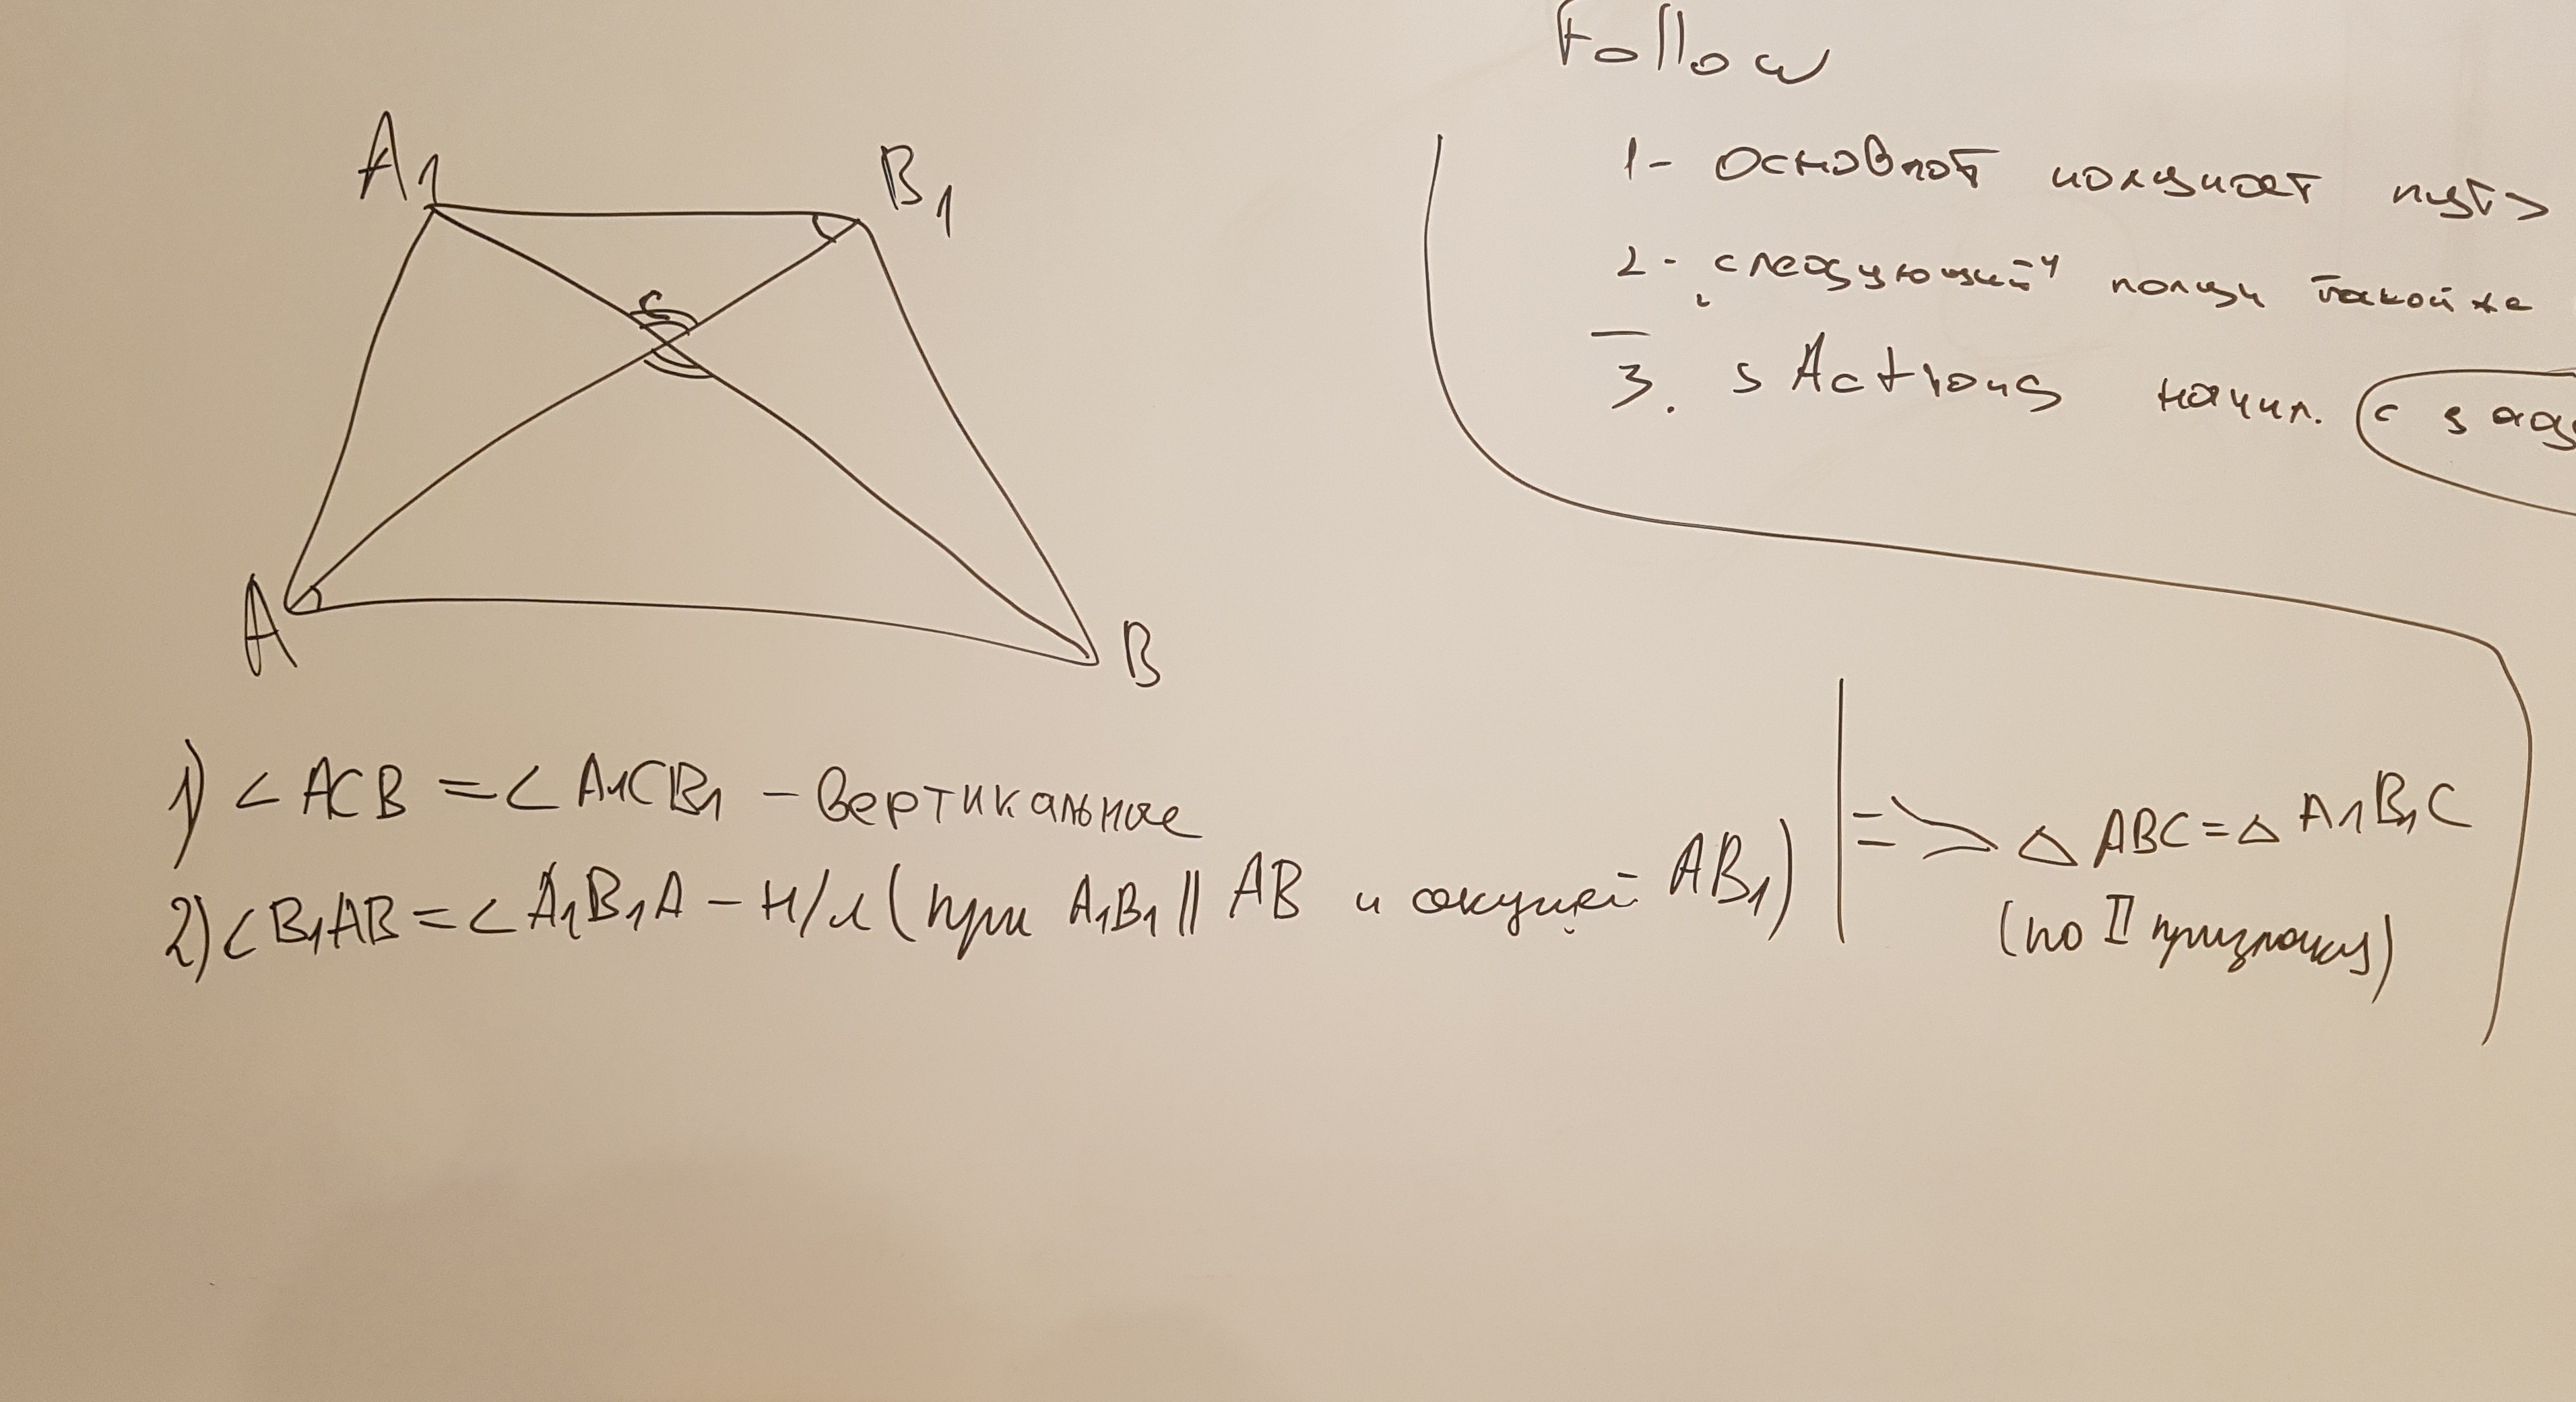 Follow
1- Основной получает путь
2- следующий получ такой же
3. sActions начил. (с
A1
B1
C
A
B
1) ∠ ACB = ∠ A1CB1 – вертикальные
2) ∠B1AB = ∠ A1B1A – н/л (при A1B1 || AB и секущей AB1)
=> △ ABC = △ A1B1C
(по II признаку)